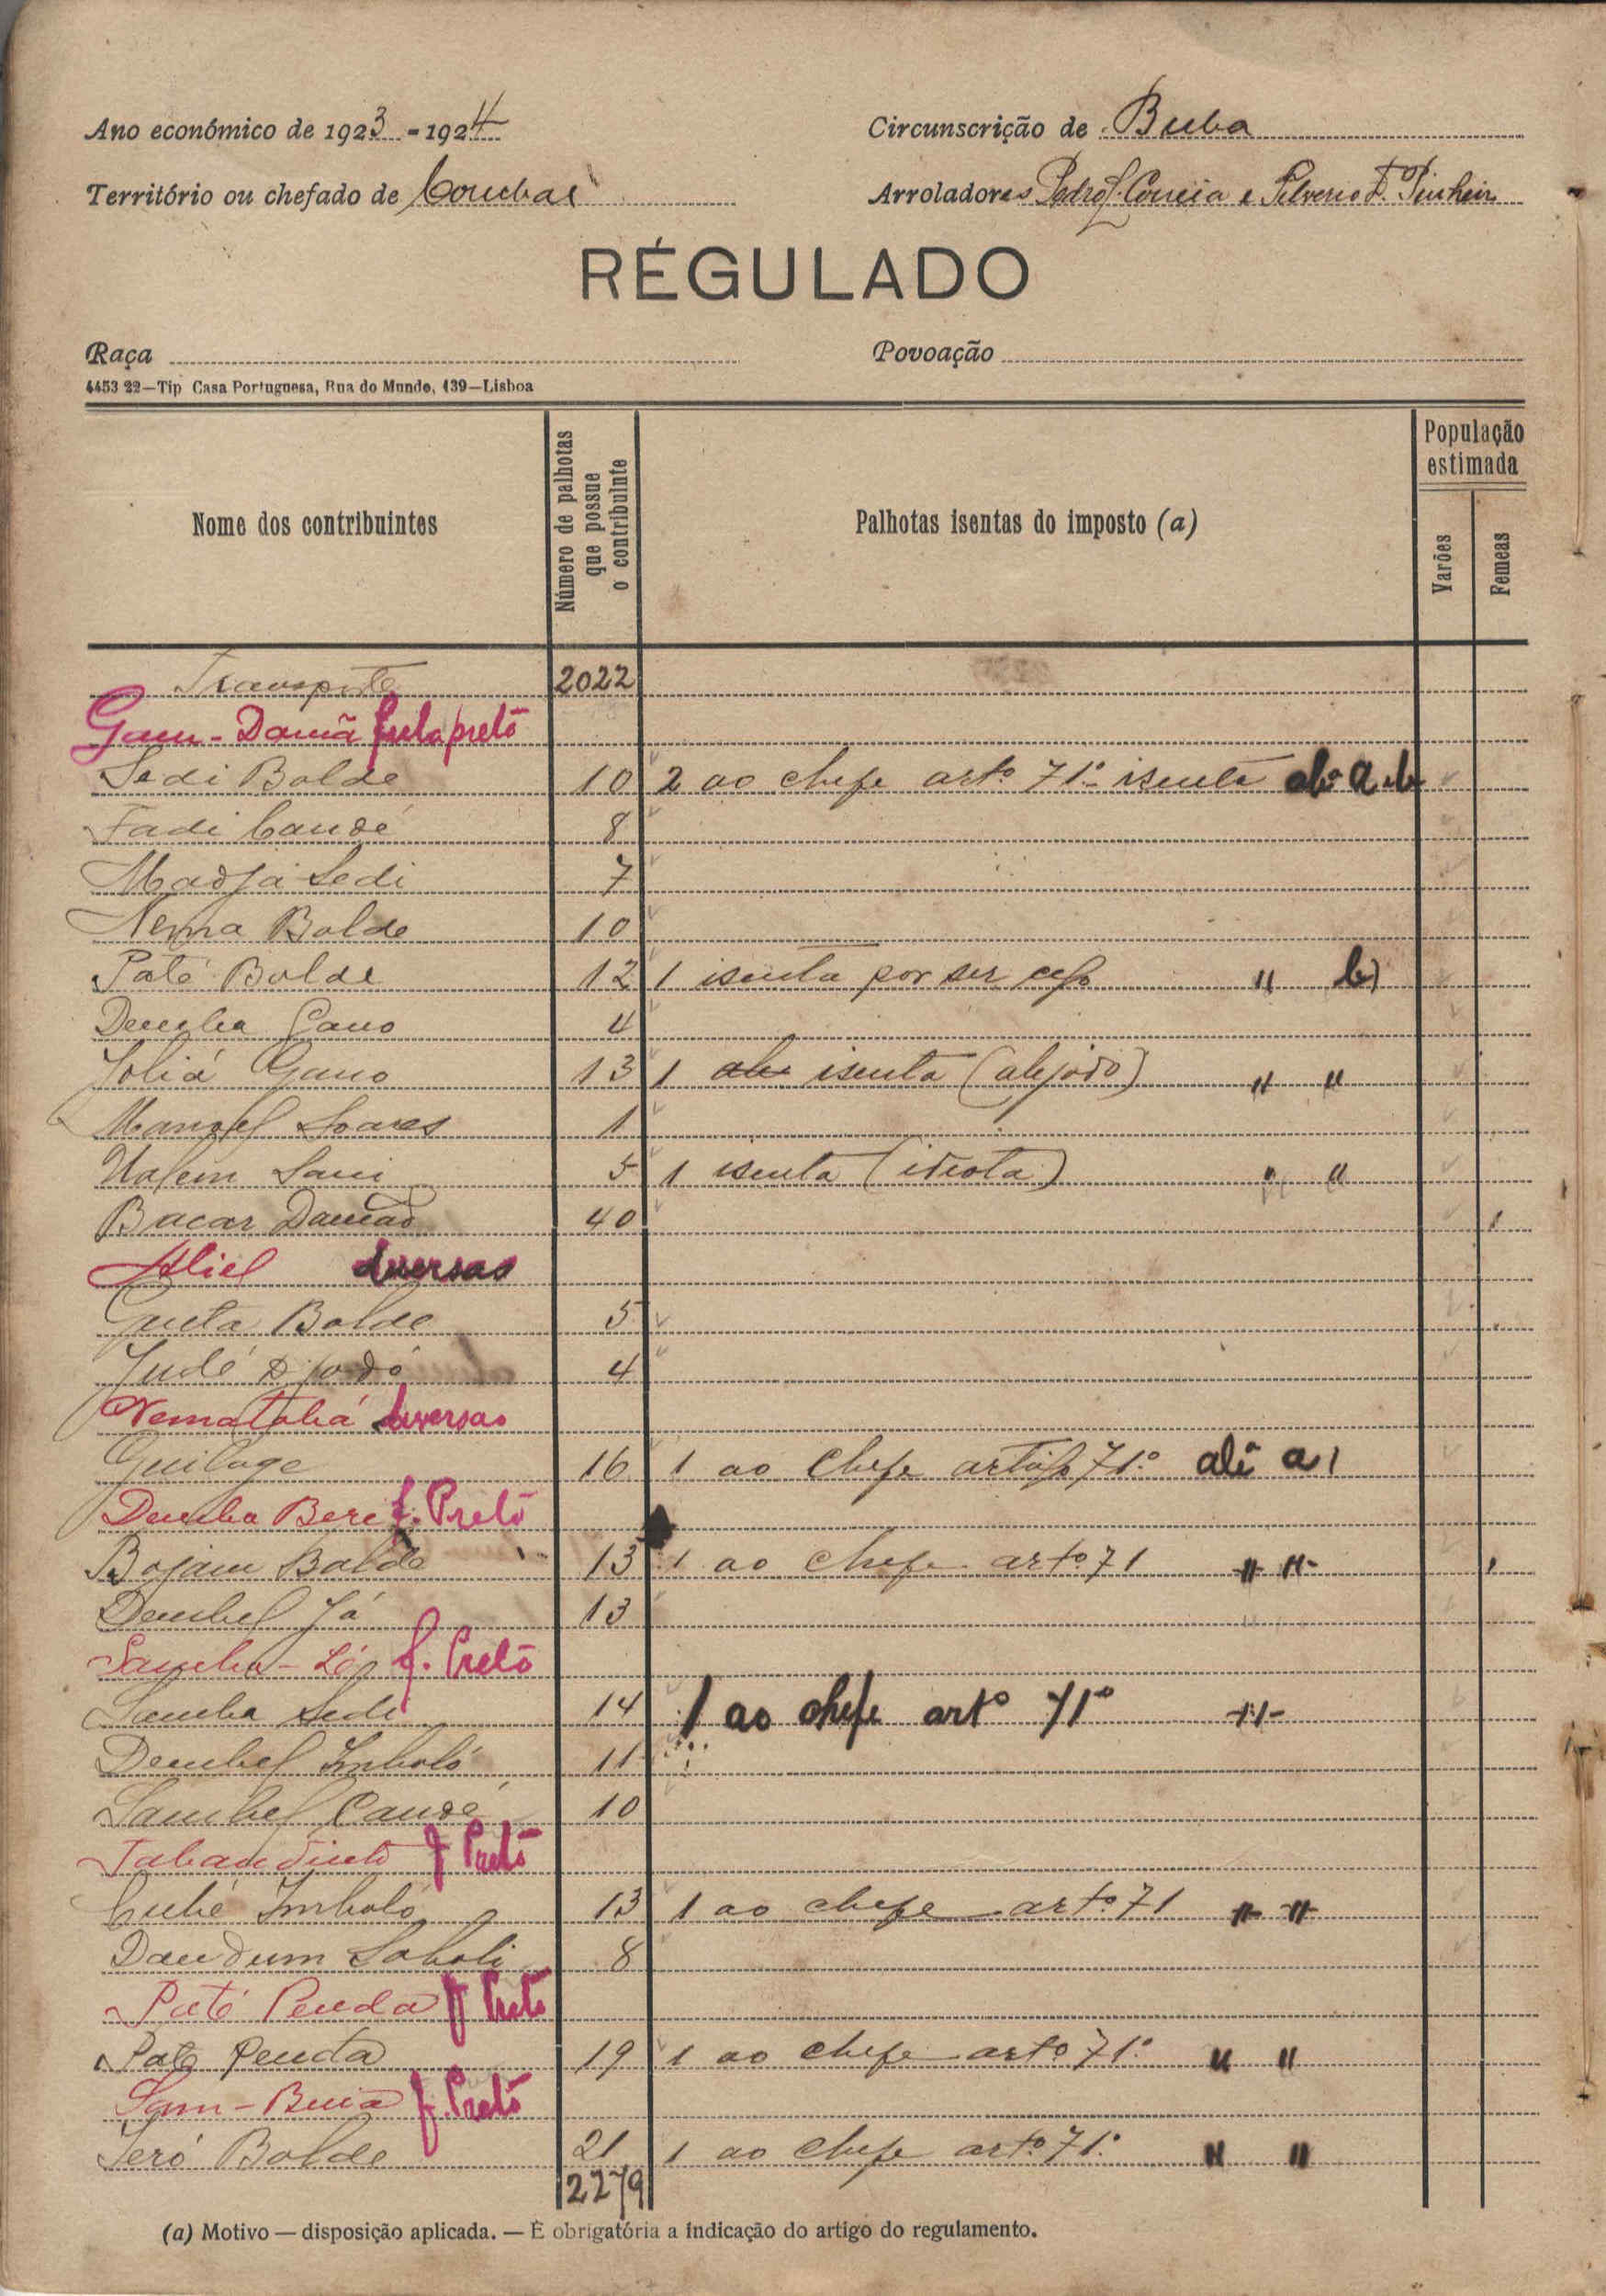 Ano económico de 1923 - 1924
Circunscrição de Buba
Território ou chefado de Corubal
Arroladores Pedro J. Correia e Silverio F. Pinheiro
RÉGULADO
Raça
Povoação
4453 22—Tip Casa Portuguesa, Rua do Mundo, 139—Lisboa
Nome dos contribuintes
Número de palhotas que possue o contribuinte
Palhotas isentas do imposto (a)
População estimada
Varões
Femeas
Transporte 2022
Gam - Damã fula preto
Sedi Balde 10 2 ao chefe artº 71º isenta alª a e b
Fadi Candé 8
Madjá Sedi 7
Nema Balde 10
Paté Balde 12 1 isenta por ser cego " b)
Demba Gano 4
Joliá Gano 13 1 isenta (alejado) " "
Manoel Soares 1
Sani 5 1 isenta (idiota) " "
Bacar Damão 40
Aliel diversas
Balde 5
Judé Djodó 4
Nematabá diversas
Guilage 16 1 ao chefe artigo 71º alª a)
Demba Bere f. Preto
Bojam Balde 13 1 ao chefe artº 71 " "
Dembel Já 13
Samba - f. Preto
Samba Sedi 14 1 ao chefe artº 71º -"-
Dembel Imbaló 11
Sambel Candé 10
Tabandinto f Preto
Cubé Imbaló 13 1 ao chefe artº 71 " "
Dandum 8
Paté Penda f Preto
Paté Penda 19 1 ao chefe artº 71º " "
Sam - Buiã f. Preto
Seró Balde 21 1 ao chefe artº 71º " "
2279
(a) Motivo — disposição aplicada. — É obrigatória a indicação do artigo do regulamento.